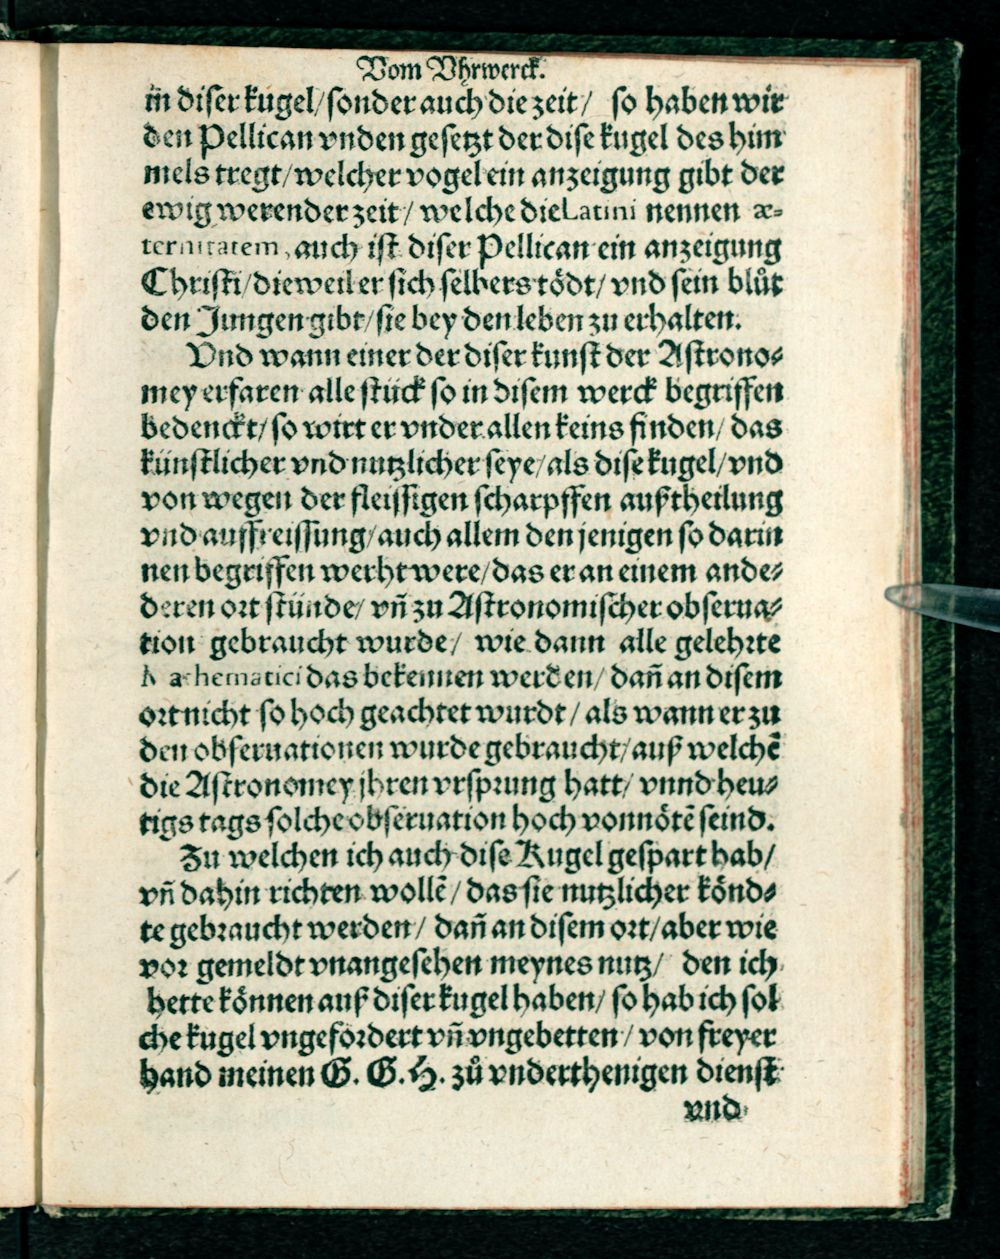 Vom Vhrwerck.
in diser kugel/sonder auch die zeit/ so haben wir
den Pellican vnden gesetzt der dise kugel des him
mels tregt/welcher vogel ein anzeigung gibt der
ewig werender zeit/ welche die Latini nennen æ-
ternitatem, auch ist diser Pellican ein anzeigung
Christi/dieweil er sich selbers tödt/ vnd sein blůt
den Jungen gibt/sie bey den leben zu erhalten.
Vnd wann einer der diser kunst der Astrono⸗
mey erfaren alle stück so in disem werck begriffen
bedenckt/so wirt er vnder allen keins finden/ das
künstlicher vnd nutzlicher seye/als dise kugel/vnd
von wegen der fleissigen scharpffen außtheilung
vnd auffreissung/auch allem den jenigen so darin
nen begriffen werht were/das er an einem ande⸗
deren ort stünde/ vn̄ zu Astronomischer obserua⸗
tion gebraucht wurde/ wie dann alle gelehrte
Mathematici das bekennen werden/ dan̄ an disem
ort nicht so hoch geachtet wurdt/ als wann er zu
den obseruationen wurde gebraucht/auß welchē
die Astronomey jhren vrsprung hatt/ vnnd heu⸗
tigs tags solche obseruation hoch vonnötē seind.
Zu welchen ich auch dise Kugel gespart hab/
vn̄ dahin richten wollē/ das sie nutzlicher könd⸗
te gebraucht werden/ dan̄ an disem ort/aber wie
vor gemeldt vnangesehen meynes nutz/ den ich
hette können auß diser kugel haben/ so hab ich sol
che kugel vngefordert vn̄ vngebetten/ von freyer
hand meinen G. G. H. zů vnderthenigen dienst
vnd